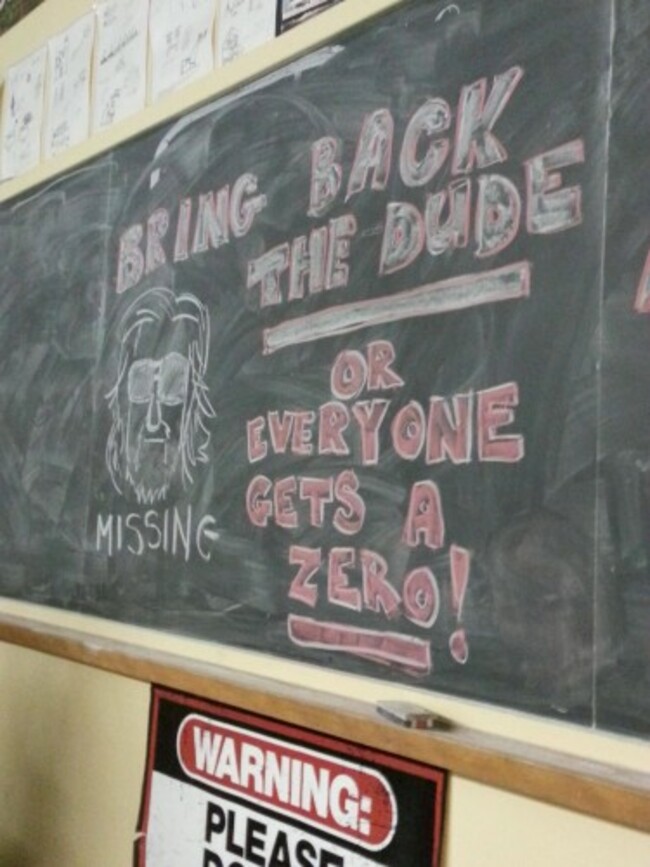 BRING BACK
THE DUDE
OR
EVERYONE
GETS A
ZERO!
MISSING
WARNING:
PLEASE